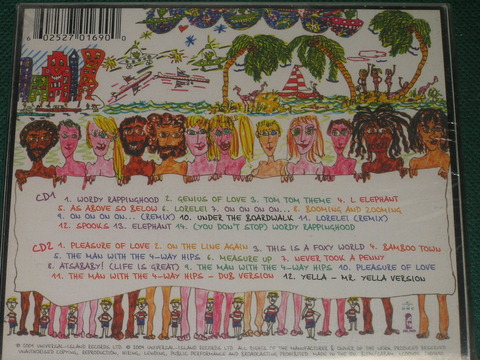 6 02527 01690 0
CD1 1. WORDY RAPPINGHOOD 2. GENIUS OF LOVE 3. TOM TOM THEME 4. L ELEPHANT
5. AS ABOVE SO BELOW 6. LORELEI 7. ON ON ON ON... 8. BOOMING AND ZOOMING
9. ON ON ON ON... (REMIX) 10. UNDER THE BOARDWALK 11. LORELEI (REMIX)
12. SPOOKS 13. ELEPHANT 14. (YOU DON'T STOP) WORDY RAPPINGHOOD
CD2 1. PLEASURE OF LOVE 2. ON THE LINE AGAIN 3. THIS IS A FOXY WORLD 4. BAMBOO TOWN
5. THE MAN WITH THE 4-WAY HIPS 6. MEASURE UP 7. NEVER TOOK A PENNY
8. ATSABABY! (LIFE IS GREAT) 9. THE MAN WITH THE 4-WAY HIPS 10. PLEASURE OF LOVE
11. THE MAN WITH THE 4-WAY HIPS - DUB VERSION 12. YELLA - MR. YELLA VERSION
UNIVERSAL-ISLAND RECORDS LTD. UNIVERSAL-ISLAND RECORDS LTD. ALL RIGHTS OF THE PRODUCER & OWNER OF THE WORK REPRODUCED RESERVED
UNAUTHORISED COPYING, REPRODUCTION, HIRING, LENDING, PUBLIC PERFORMANCE AND BROADCASTING PROHIBITED. MADE IN THE EU.